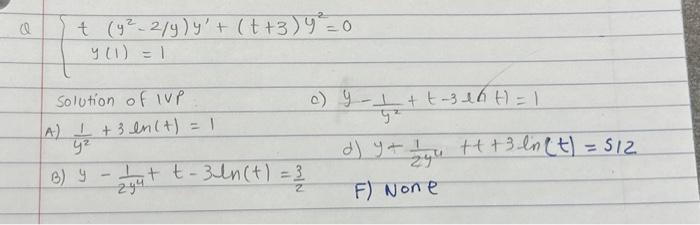 Q { t (y² - 2/y) y' + (t+3) y² = 0
y(1) = 1
Solution of IVP
A) 1/y² + 3 ln(t) = 1
B) y - 1/2y⁴ + t - 3 ln(t) = 3/2
c) y - 1/y² + t - 3 ln t) = 1
d) y + 1/2y⁴ + t + 3 ln(t) = 512
F) None